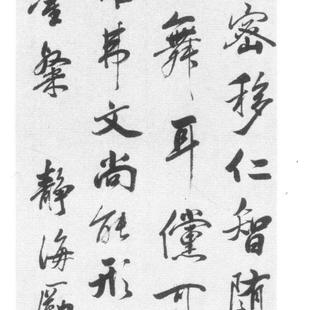 密移仁智随
舞耳儻可
文尚能形
粲静海